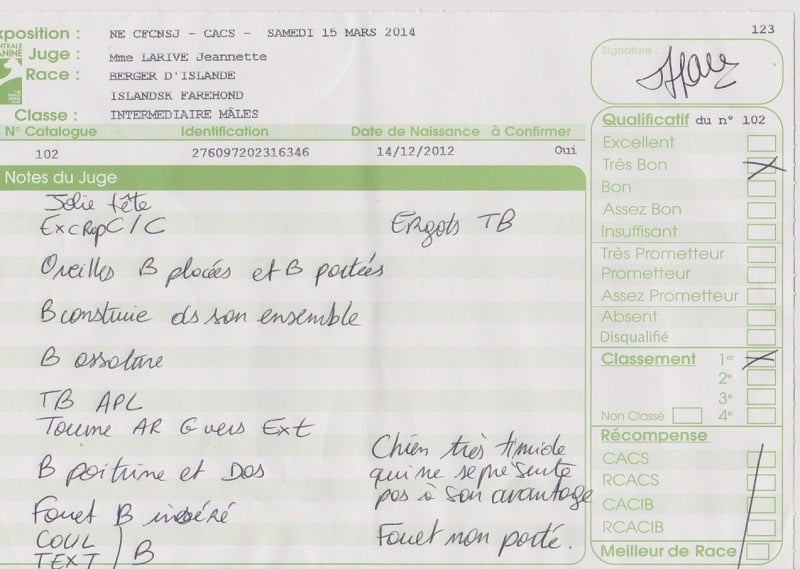 xposition : NE CFCNSJ - CACS - SAMEDI 15 MARS 2014
123
NTRALE
ANINE
Juge : Mme LARIVE Jeannette
Race : BERGER D'ISLANDE
ISLANDSK FAREHOND
Classe : INTERMEDIAIRE MÂLES
Signature :
N° Catalogue Identification Date de Naissance à Confirmer
102 276097202316346 14/12/2012 Oui
Notes du Juge
Jolie tête
Exc Rap C/C Ergots TB
Oreilles B placées et B portées
B construie ds son ensemble
B ossature
TB APL
Tourne AR G vers Ext
B poitrine et Dos
Fouet B inséré
COUL
TEXT ) B
Chien très timide
qui ne se présente
pas à son avantage
Fouet non porté.
Qualificatif du n° 102
Excellent
Très Bon
Bon
Assez Bon
Insuffisant
Très Prometteur
Prometteur
Assez Prometteur
Absent
Disqualifié
Classement 1er
2e
3e
Non Classé 4e
Récompense
CACS
RCACS
CACIB
RCACIB
Meilleur de Race